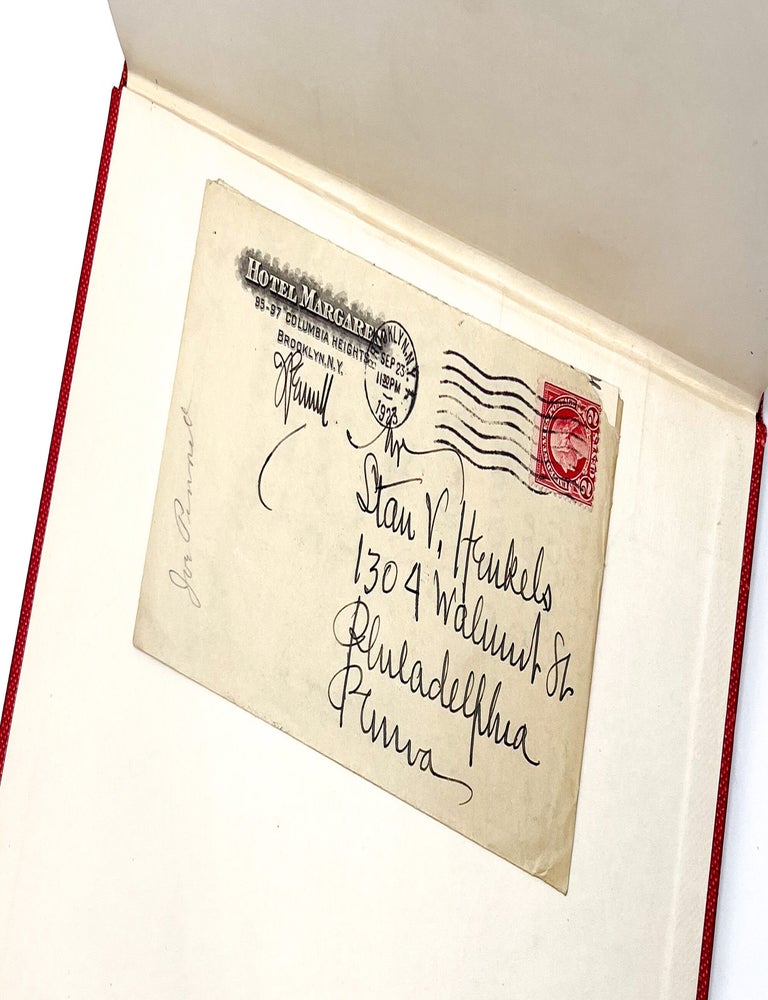 HOTEL MARGARET
95-97 COLUMBIA HEIGHTS
BROOKLYN, N.Y.
BROOKLYN, N.Y.
SEP 23
1130 PM
1923
J Pennell.
Mr
Stan V. Henkels
1304 Walnut St
Philadelphia
Penna
Joe Pennell
2 2